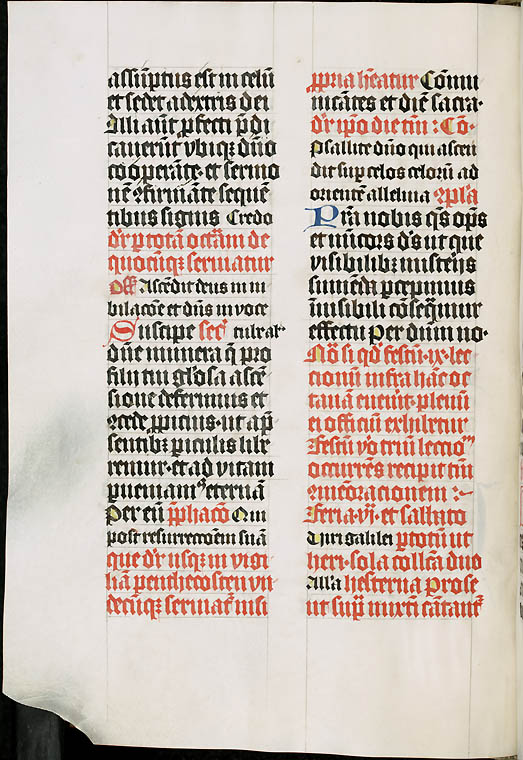 assūptus est in celū
et sedet a dextris dei
Illi aūt ꝓfecti p̄di
cauerūt vbiqꝫ dn̄o
cooperāte · et sermo
nē ꝯfirmāte sequē
tibus signis Credo
dr̄ ꝑ totā octāam de
quocūqꝫ seruatur
Off Ascēdit deus in iu
bilacōe et dn̄s in voce
Suscipe secr̄
dn̄e munera q̄ pro
filij tui gl̓osa ascē
sione deferimus et
ꝯcede ꝓpicius · ut a p̄
sentibꝫ ꝑiculis libe
remur · et ad vitam
ꝑueniam⁹ eternā
Per eū p̄phacō Qui
post resurrectōem suā
que dr̄ usqꝫ in vigi
liā penthecosten vn
decūqꝫ seruat̄ nisi
ꝓpria hēatur Cōmu
nicātes et diē sacra·
dr̄ ip̄o die tm̄ : Cō·
Psallite dn̄o qui ascen
dit suꝑ celos celorū ad
orientē alleluia ꝯpl̄a
Pr̄a nobis q̄s op̄s
et mi̅cors ds̄ ut que
visibilibꝫ misterijs
sumēda ꝑcepimus
inuisibili cōsequmur
effectu Per dnm̄ no·
Nō si qd̓ festū · ix · lec
cionum infra hāc oc
tauā euen̄it · plenū
ei officiū exhibetur
Festū vo̓ triū lecciōn
occurrēs recipit tm̄
ꝯmēoracionem :~
Feria · vj · et sabbato
dn̄r galilei ꝑ totū ut
heri · sola collc̄a dn̄o
Alla hesterna prose
ut sup̄ mixti cātant̄